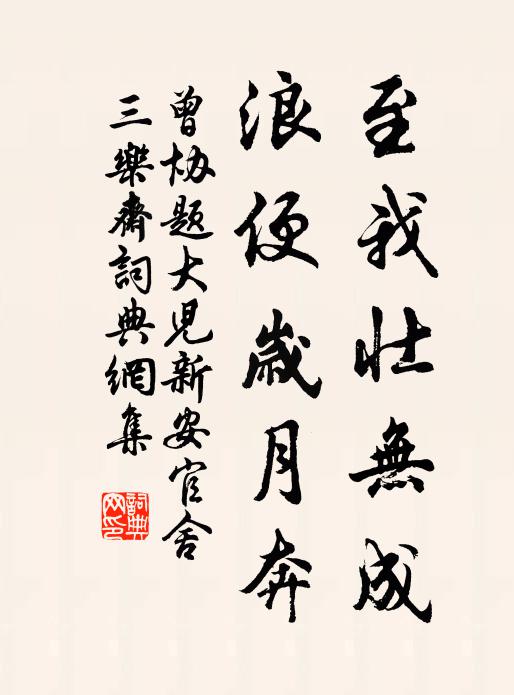 至我壮無成
浪便歲月奔
曾协題大兒新安官舍
三樂齋詞典網集
詞典網印